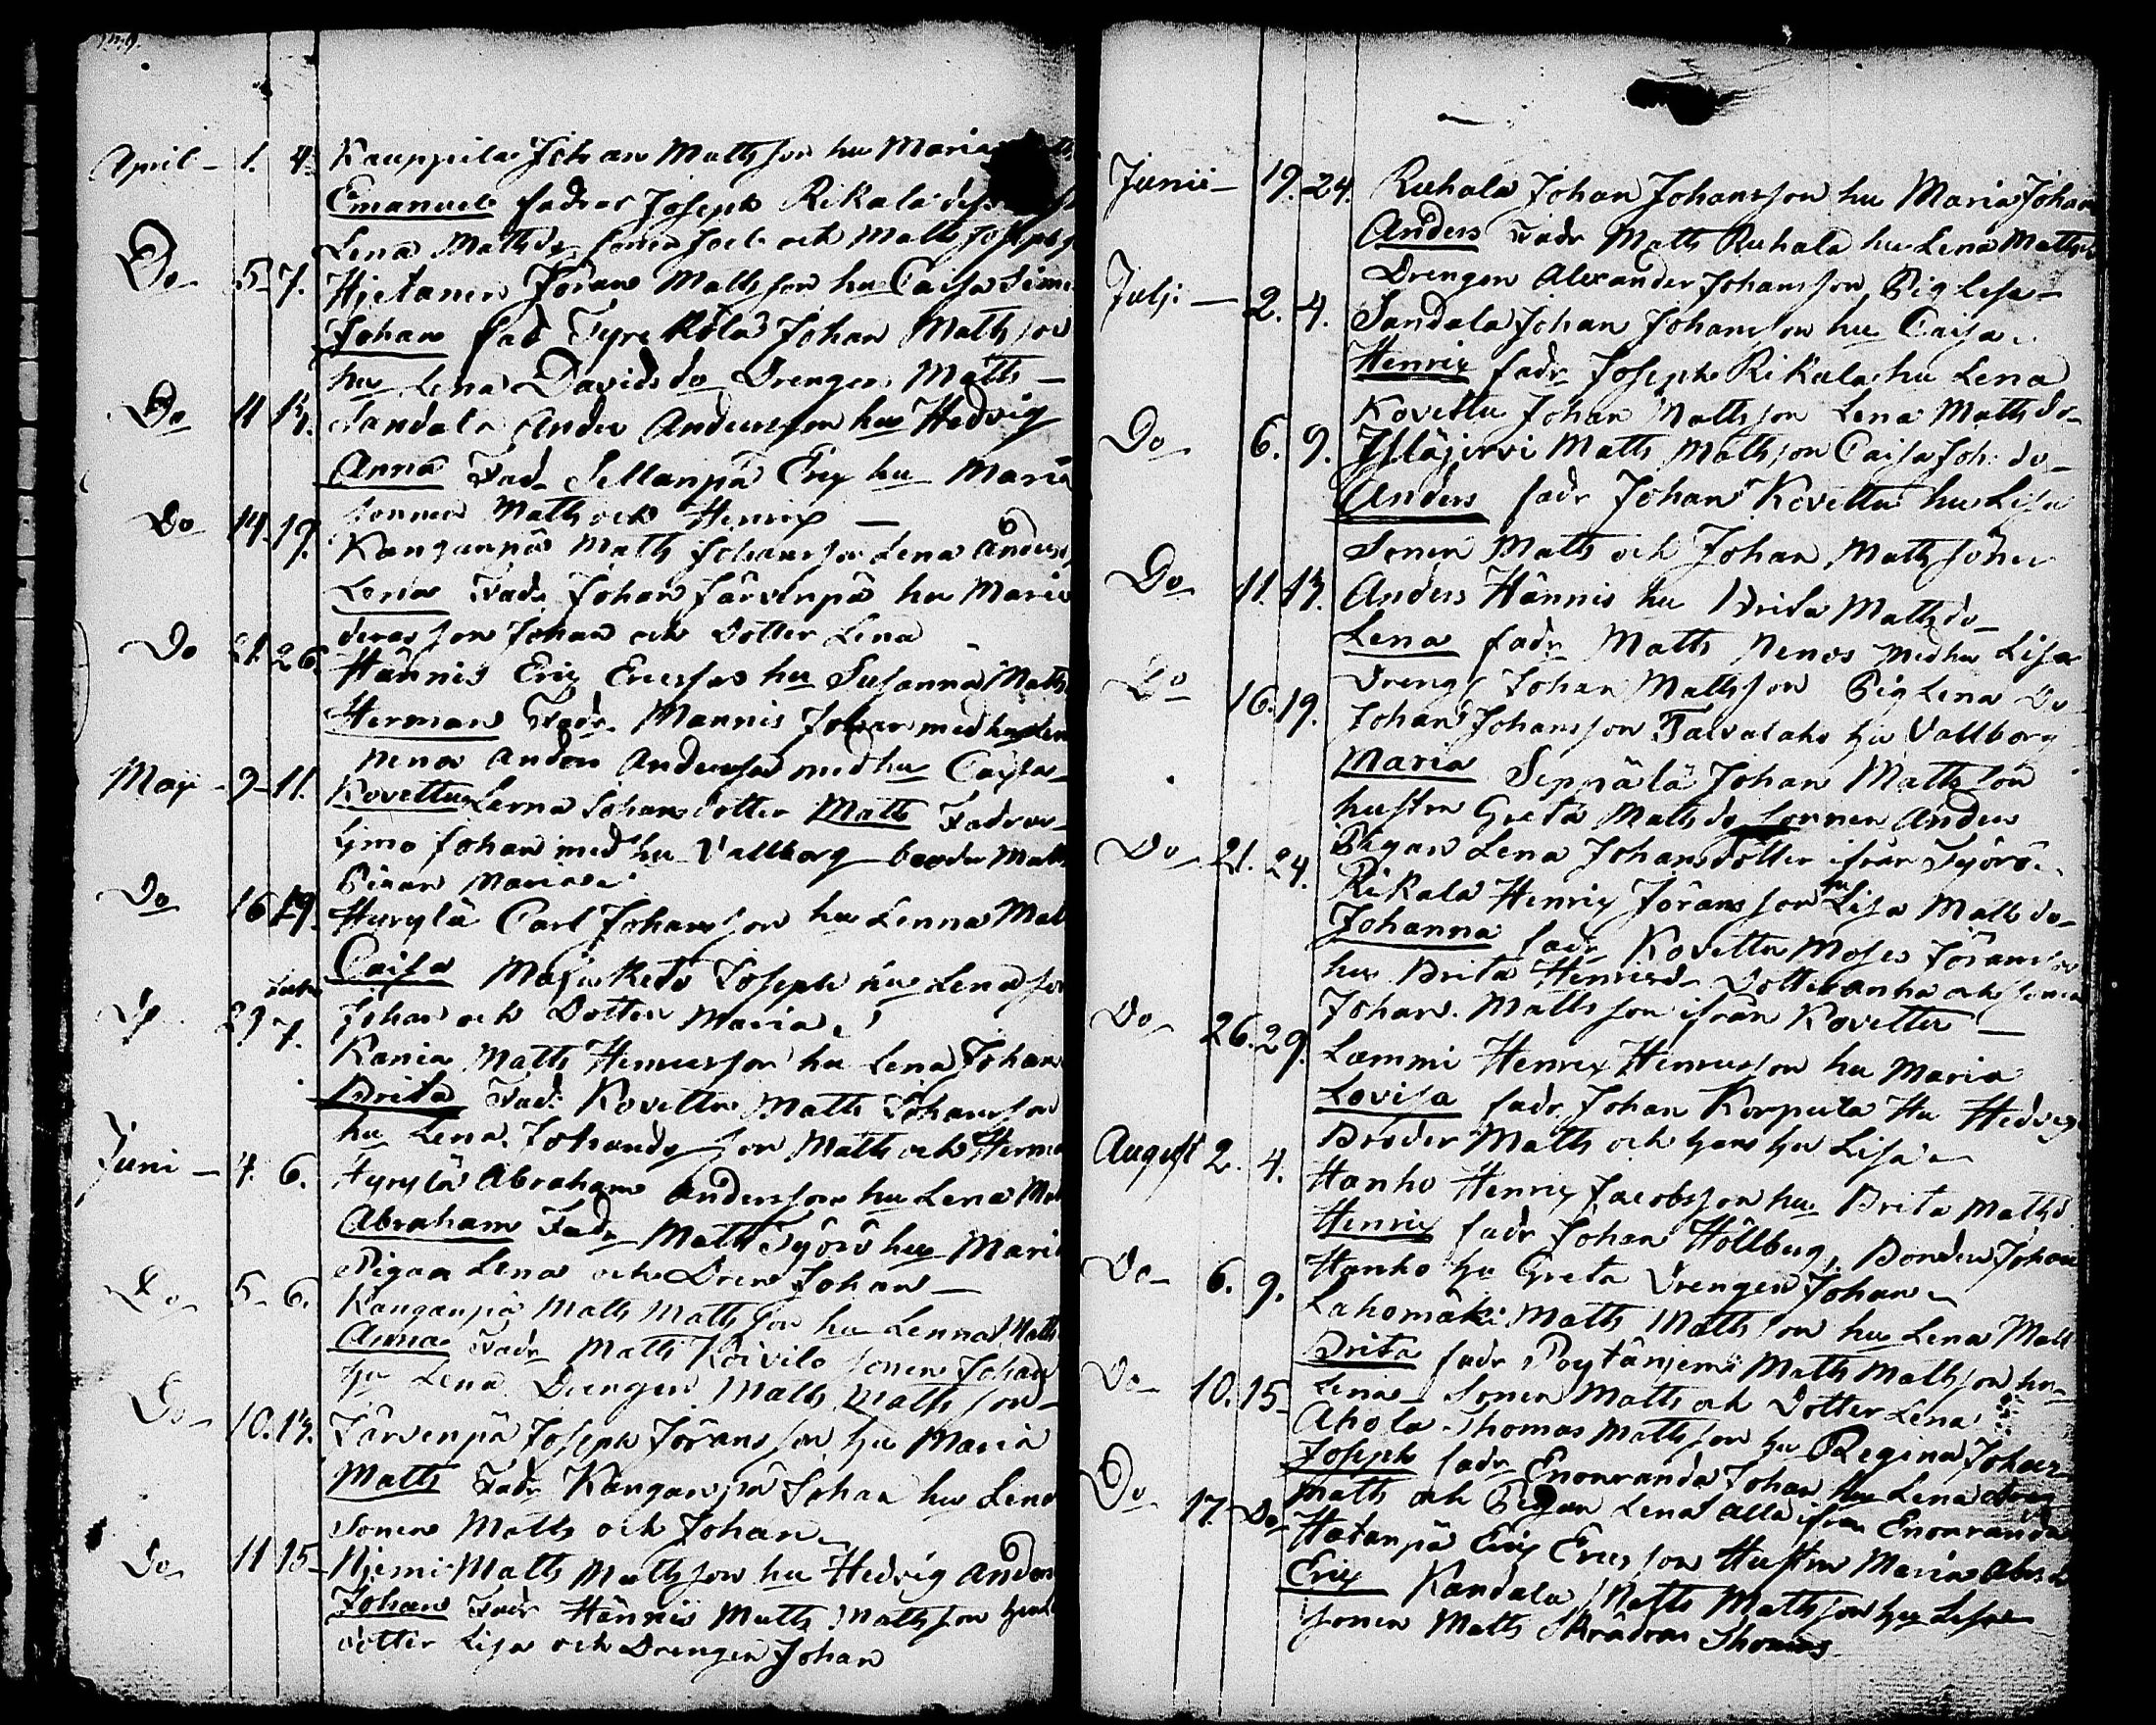 April - 1. 4. Kauppila Johan Mattsson hu Maria
Emanuel fadrar Joseph Rikala
Lena Mattsdr sonen Joel och Matts Josephs
Do 5 7. Hietanen Jöran Mattsson hu Caisa Sim
Johan fad Tyrekölä Johan Mattsson
hu Lena Davidsdo Drengen Matts -
Do 11 13. Sandala Anders Andersson hu Hedvig
Anna Fad Sellanpä Eric hu Maria
sonnen Matts och Henric -
Do 14 19. Kanganpä Matts Johansson Lena Anders
Lena Fadr Johan Järvenpä hu Maria
deras son Johan och Dotter Lena
Do 21. 26. Hännis Eric Ericsson hu Susanna Matts
Herman Fadr Mannis Johan med hu Len
Nenos Anders Andersson med hu Caysa
May - 9 - 11. Kovettu Lerna Johansdotter Matts Fadrar
Limo Johan med hu Vallborg broder Matts
Pigan Maria
Do 16 19. Hyrylä Carl Johansson hu Lenna Mat
Caisa Joseph hu Lena son
29 7. Johan och Dotter Maria
Kania Matts Henricsson hu Lena Johan
Brita Fad: Kovettu Matts Johansson
hu Lena Johansdr son Matts och Herma
Juni - 4. 6. Hyrylä Abraham Andersson hu Lena Mat
Abraham Fadr Matts Työrö hu Mari
Pigan Lena och Dren Johan -
Do 5 - 6. Kanganpä Matts Mattsson hu Lenna Matts
Anna Fadr Matts Koivilo sonen Johan
hu Lena Drengen Matts Mattsson
Do 10. 13. Järvenpä Joseph Jöransson hu Maria
Matts Fadr Kanganpä Johan hu Lena
Sonen Matts och Johan
Do 11 15 Njemi Matts Mattsson hu Hedvig Anders
Johan Fadr Hännis Matts Mattsson
dotter Lisa och Drengen Johan
Junii - 19. 24. Ruhala Johan Johansson hu Maria Johan
Anders Fadr Matts Ruhala hu Lena Matts
Drengen Alexander Johansson, Pig Lisa -
Julj - 2. 4. Sandala Johan Johansson hu Caisa
Henric fadr Joseph Rikala hu Lena
Kovettu Johan Mattsson Lena Mattsdr
Do 6. 9. Isläjervi Matts Mattsson Caisa Joh: do
Anders fadr Johan Kovettu hu Lisa
Sonen Matts och Johan Mattssöner
Do 11. 13. Anders Hännis hu Brita Mattsdo
Lena fadr Matts Nenos med hu Lisa
Dreng Johan Mattsson Pig Lena Do
Do 16. 19. Johan Johansson Taivalaho hu Vallborg
Maria Seppälä Johan Mattsson
hustru Greta Mattsdr Sonnen Anders
Pigan Lena Johansdotter ifrån Työrö
Do 21. 24. Rikala Henric Jöransson hu Lisa Mattsdo
Johanna fadr Kovettu Moses Jöransson
hu Brita Henricsdr Dotter och sonen
Johan Mattsson ifrån Kovettu -
Do 26. 29. Lammi Henric Henricsson hu Maria
Lovisa fadr Johan Korpula Hu Hedvig
Broder Matts och hans hu Lisa
August 2. 4. Hanho Henric Jacobsson hu Brita Mattsd
Henric fadr Johan Höllberg, Bonden Johan
Hanho hu Greta Drengen Johan
Do 6. 9. Lahomäki Matts Mattsson hu Lena Matt
Brita fadr Poytäniemi Matts Mattsson hu
Lena Sonen Matts och Dotter Lena
Do 10. 15 Ahola Thomas Mattsson hu Regina Johan
Joseph fadr Enonranda Johan hu Lena
Matts och Pigan Lena alla ifrån Enonranda
Do 17. Do Hatanpä Eric Ericsson Hustru Maria
Eric Kandala Matts Mattsson hu Lisa
sonen Matts Skrädrar Thomas